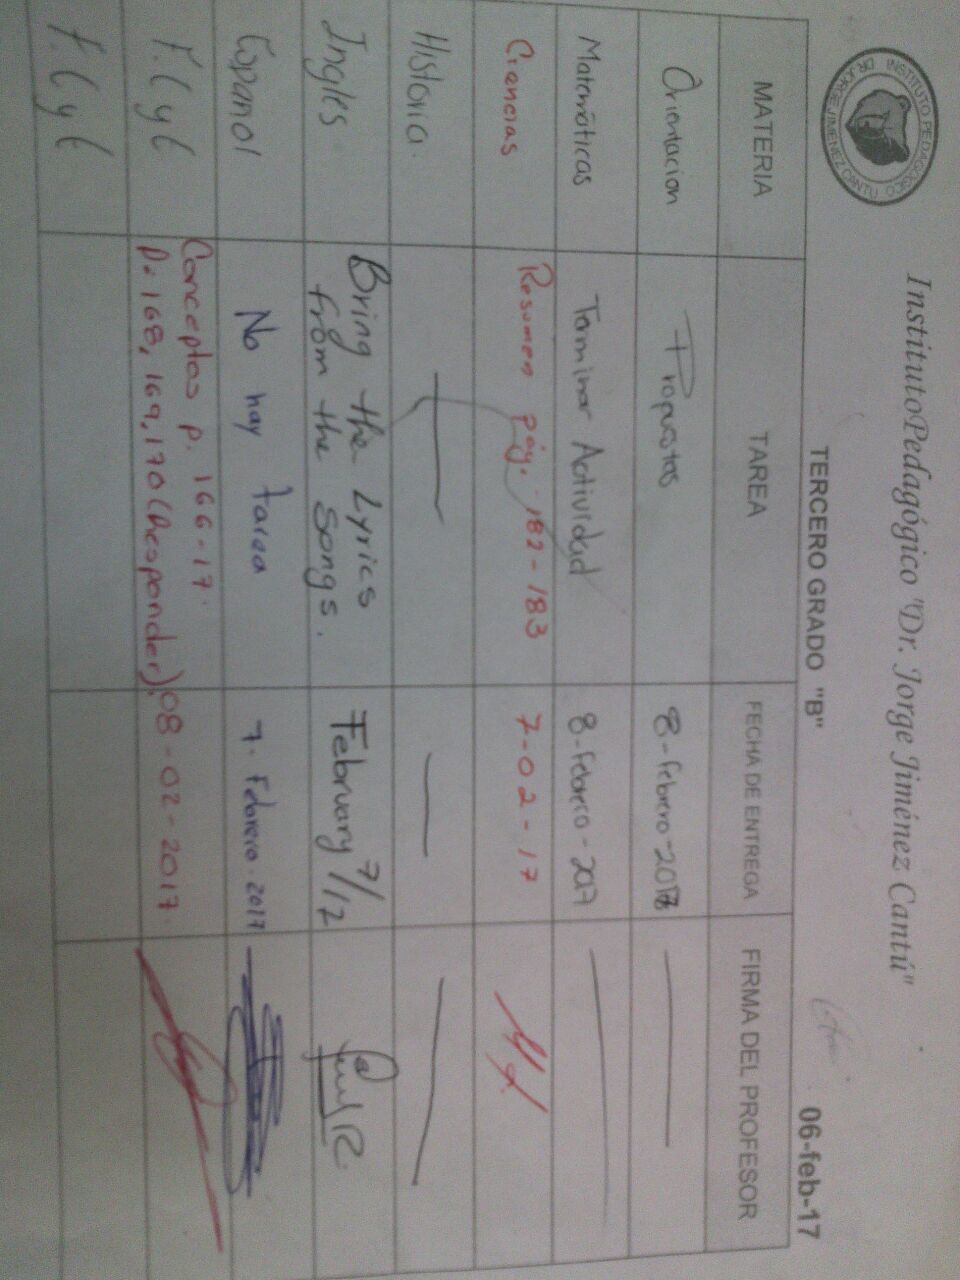 INSTITUTO PEDAGOGICO
DR. JORGE JIMENEZ CANTU
InstitutoPedagógico "Dr. Jorge Jiménez Cantú"
TERCERO GRADO "B" 06-feb-17
MATERIA TAREA FECHA DE ENTREGA FIRMA DEL PROFESOR
Orientacion Propustas 8-febrero-2017
Matemáticas Terminar Actividad 8-febrero-2017
Ciencias Resumen pág. 182-183 7-02-17
Historia.
Ingles Bring the Lyrics February 7/17
from the songs.
Espanol No hay tarea 7. Febrero. 2017
F.CyE Conceptos p. 166-17.
p. 168, 169, 170 (Responder). 08-02-2017
F.CyE